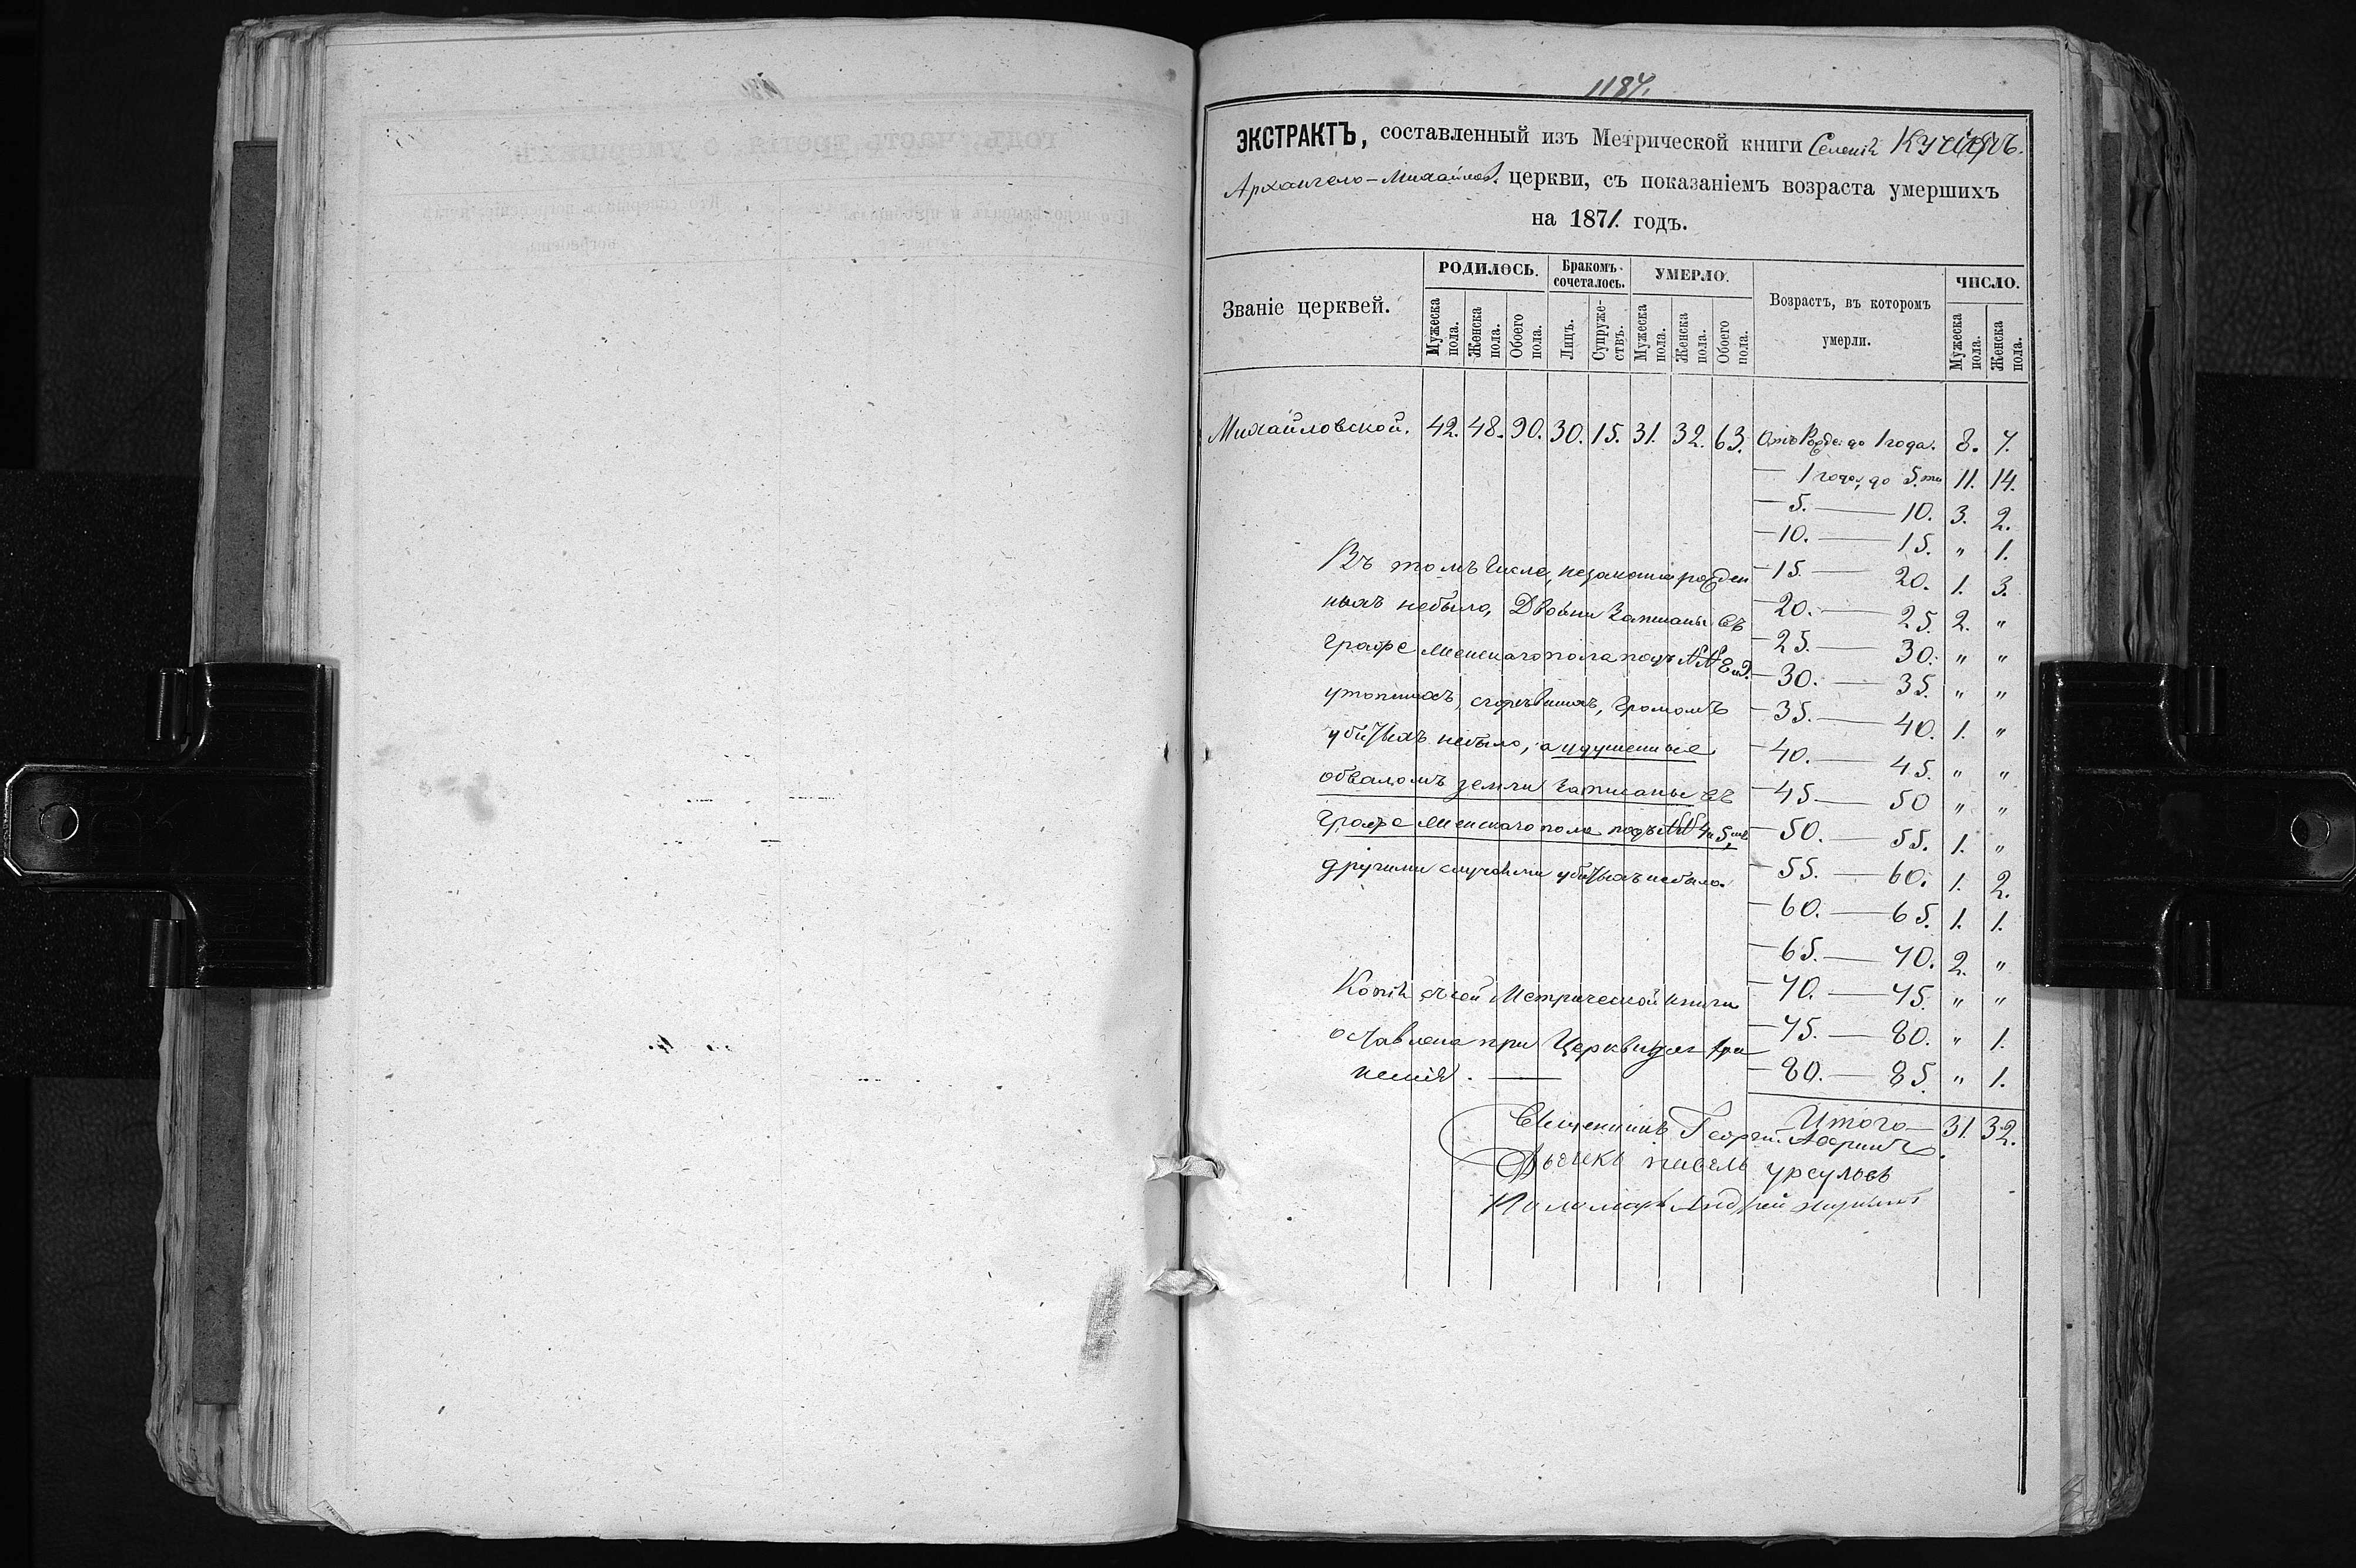 1184.
ЭКСТРАКТЪ, составленный изъ Метрической книги Селенія
Архангело-Михайлов. церкви, съ показаніемъ возраста умершихъ
на 1871. годъ.
Званіе церквей.
РОДИЛОСЬ.
Бракомъ сочеталось.
УМЕРЛО.
Возрастъ, въ которомъ умерли.
ЧИСЛО.
Мужеска пола.
Женска пола.
Обоего пола.
Лицъ.
Супружествъ.
Мужеска пола.
Женска пола.
Обоего пола.
Мужеска пола.
Женска пола.
Михайловской. 42. 48. 90. 30. 15. 31. 32. 63. Отъ Рожд: до 1 года. 8. 7.
— 1 года, до 5.ти 11. 14.
— 5. — 10. 3. 2.
— 10. — 15. " 1.
— 15. — 20. 1. 3.
— 20. — 25. 2. "
— 25. — 30. " "
— 30. — 35. " "
— 35. — 40. 1. "
— 40. — 45. " "
— 45 — 50 " "
— 50. — 55. 1. "
— 55. — 60. 1. 2.
— 60. — 65. 1. 1.
— 65. — 70. 2. "
— 70. — 75. " "
— 75. — 80. " 1.
— 80. — 85. " 1.
Итого — 31. 32.
Въ томъ числе, незаконно рожден
ныхъ небыло, Двойни записаны въ
графе женскаго пола подъ №№
утопшихъ, сгоревшихъ, громомъ
убитыхъ небыло, а удушенные
обваломъ земли записаны въ
графе женскаго пола подъ №№ 4 и 5,
другими случаями убитыхъ небыло.
Копія съ сей Метрической книги
оставлена при Церкви для хра
ненія. —
Священникъ Георгій
Дьячекъ павелъ урсулов
Паламарь Андрей